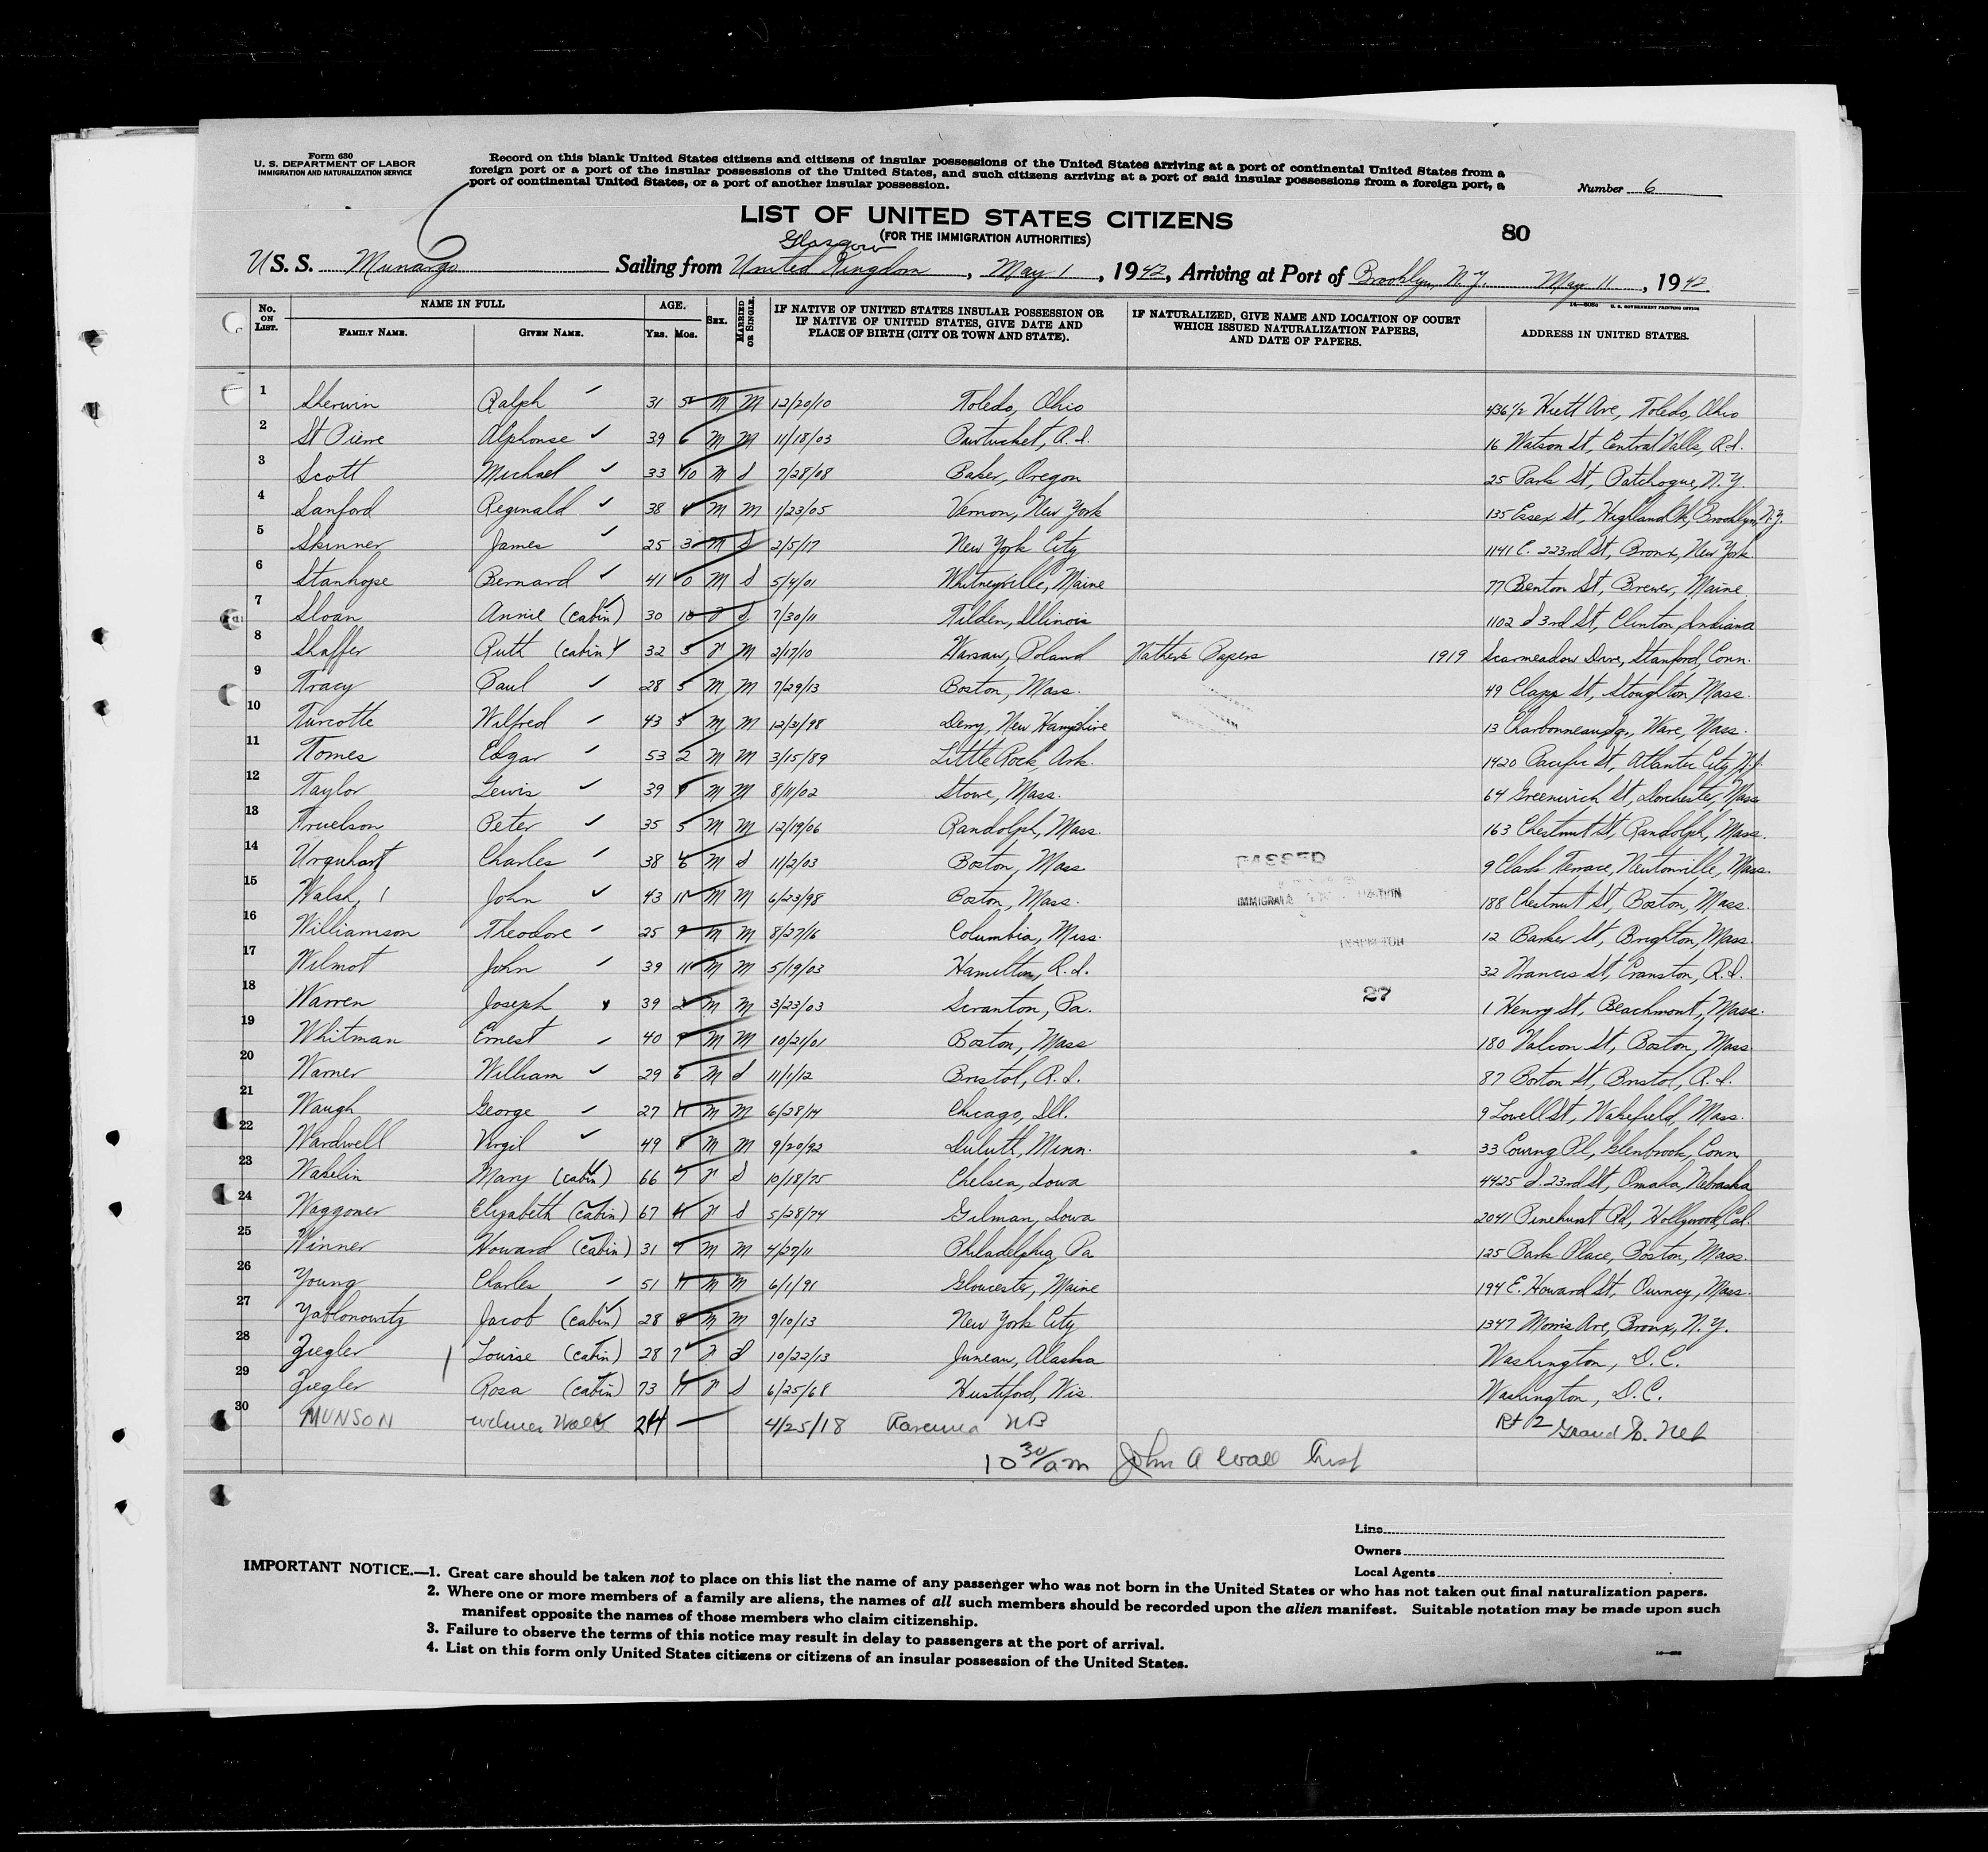 Form 630
U. S. DEPARTMENT OF LABOR
IMMIGRATION AND NATURALIZATION SERVICE
Record on this blank United States citizens and citizens of insular possessions of the United States arriving at a port of continental United States from a
foreign port or a port of the insular possessions of the United States, and such citizens arriving at a port of said insular possessions from a foreign port, a
port of continental United States, or a port of another insular possession.
Number 6
6
LIST OF UNITED STATES CITIZENS
(FOR THE IMMIGRATION AUTHORITIES)
80
Glasgow
U S. S. Munargo Sailing from United Kingdom, May 1, 1942, Arriving at Port of Brooklyn, N.Y. May 11, 1942
No. ON LIST. NAME IN FULL FAMILY NAME. GIVEN NAME. AGE. Yrs. Mos. SEX. MARRIED OR SINGLE. IF NATIVE OF UNITED STATES INSULAR POSSESSION OR IF NATIVE OF UNITED STATES, GIVE DATE AND PLACE OF BIRTH (CITY OR TOWN AND STATE). IF NATURALIZED, GIVE NAME AND LOCATION OF COURT WHICH ISSUED NATURALIZATION PAPERS, AND DATE OF PAPERS. ADDRESS IN UNITED STATES.
1 Sherwin Ralph 31 5 M M 12/20/10 Toledo, Ohio 436 1/2 Hiett Ave, Toledo, Ohio
2 St Pierre Alphonse 39 6 M M 11/18/03 Pawtucket, R.I. 16 Watson St, Central Falls, R.I.
3 Scott Michael 33 10 M S 7/28/08 Baker, Oregon 25 Park St, Patchogue, N.Y.
4 Sanford Reginald 38 M M 1/23/05 Vernon, New York 135 Essex St, Highland Pk, Brooklyn, N.Y.
5 Skinner James 25 3 M S 2/5/17 New York City 1141 E. 223rd St, Bronx, New York
6 Stanhope Bernard 41 0 M S 5/4/01 Whitneyville, Maine 77 Benton St, Brewer, Maine
7 Sloan Annie (cabin) 30 10 F S 7/30/11 Tilden, Illinois 1102 S 3rd St, Clinton, Indiana
8 Shaffer Ruth (cabin) 32 5 F M 2/17/10 Warsaw, Poland Father's Papers 1919 Scarmeadow Drive, Stanford, Conn.
9 Tracy Paul 28 5 M M 7/29/13 Boston, Mass. 49 Clapp St, Stoughton, Mass.
10 Turcotte Wilfred 43 5 M M 12/31/98 Derry, New Hampshire 13 Charbonneau Sq., Ware, Mass.
11 Tomes Edgar 53 2 M M 3/15/89 Little Rock Ark. 1420 Pacific St, Atlantic City, N.J.
12 Taylor Lewis 39 9 M M 8/11/02 Stowe, Mass. 64 Greenwich St, Dorchester, Mass
13 Truelson Peter 35 5 M M 12/19/06 Randolph, Mass. 163 Chestnut St, Randolph, Mass.
14 Urquhart Charles 38 6 M S 11/2/03 Boston, Mass 9 Clark Terrace, Newtonville, Mass.
15 Walsh, John 43 11 M M 6/23/98 Boston, Mass. 188 Chestnut St, Boston, Mass.
16 Williamson Theodore 25 9 M M 8/27/16 Columbia, Miss. 12 Barker St, Brighton, Mass.
17 Wilmot John 39 11 M M 5/19/03 Hamilton, R.I. 32 Francis St, Cranston, R.I.
18 Warren Joseph 39 2 M M 3/23/03 Scranton, Pa. 1 Henry St, Beachmont, Mass.
19 Whitman Ernest 40 7 M M 10/21/01 Boston, Mass 180 Falcon St, Boston, Mass.
20 Warner William 29 6 M S 11/1/12 Bristol, R.I. 87 Borton St, Bristol, R.I.
21 Waugh George 27 11 M M 6/28/14 Chicago, Ill. 9 Lowell St, Wakefield, Mass.
22 Wardwell Virgil 49 8 M M 9/20/92 Duluth, Minn. 33 Couring Pl, Glenbrook, Conn
23 Wakelin Mary (cabin) 66 7 F S 10/18/75 Chelsea, Iowa 4425 S. 23rd St, Omaha, Nebraska
24 Waggoner Elizabeth (cabin) 67 11 F S 5/28/74 Gilman, Iowa 2041 Pinehurst Rd, Hollywood, Cal.
25 Winner Howard (cabin) 31 M M 4/27/11 Philadelphia, Pa 125 Park Place, Boston, Mass.
26 Young Charles 51 11 M M 6/1/91 Gloucester, Maine 194 E. Howard St, Quincy, Mass.
27 Yablonowitz Jacob (cabin) 28 8 M M 9/10/13 New York City 1347 Morris Ave, Bronx, N.Y.
28 Ziegler Louise (cabin) 28 7 F S 10/22/13 Juneau, Alaska Washington, D.C.
29 Ziegler Rosa (cabin) 73 11 F S 6/25/68 Hustiford, Wis. Washington, D.C.
30 MUNSON 24 4/25/18 Ravenna NB Rt 2 Grand Is. Neb
PASSED
IMMIGRA
INSPECTOR
27
10 30/am John A Wall Insp
Line
Owners
Local Agents
IMPORTANT NOTICE.—1. Great care should be taken not to place on this list the name of any passenger who was not born in the United States or who has not taken out final naturalization papers.
2. Where one or more members of a family are aliens, the names of all such members should be recorded upon the alien manifest. Suitable notation may be made upon such
manifest opposite the names of those members who claim citizenship.
3. Failure to observe the terms of this notice may result in delay to passengers at the port of arrival.
4. List on this form only United States citizens or citizens of an insular possession of the United States.